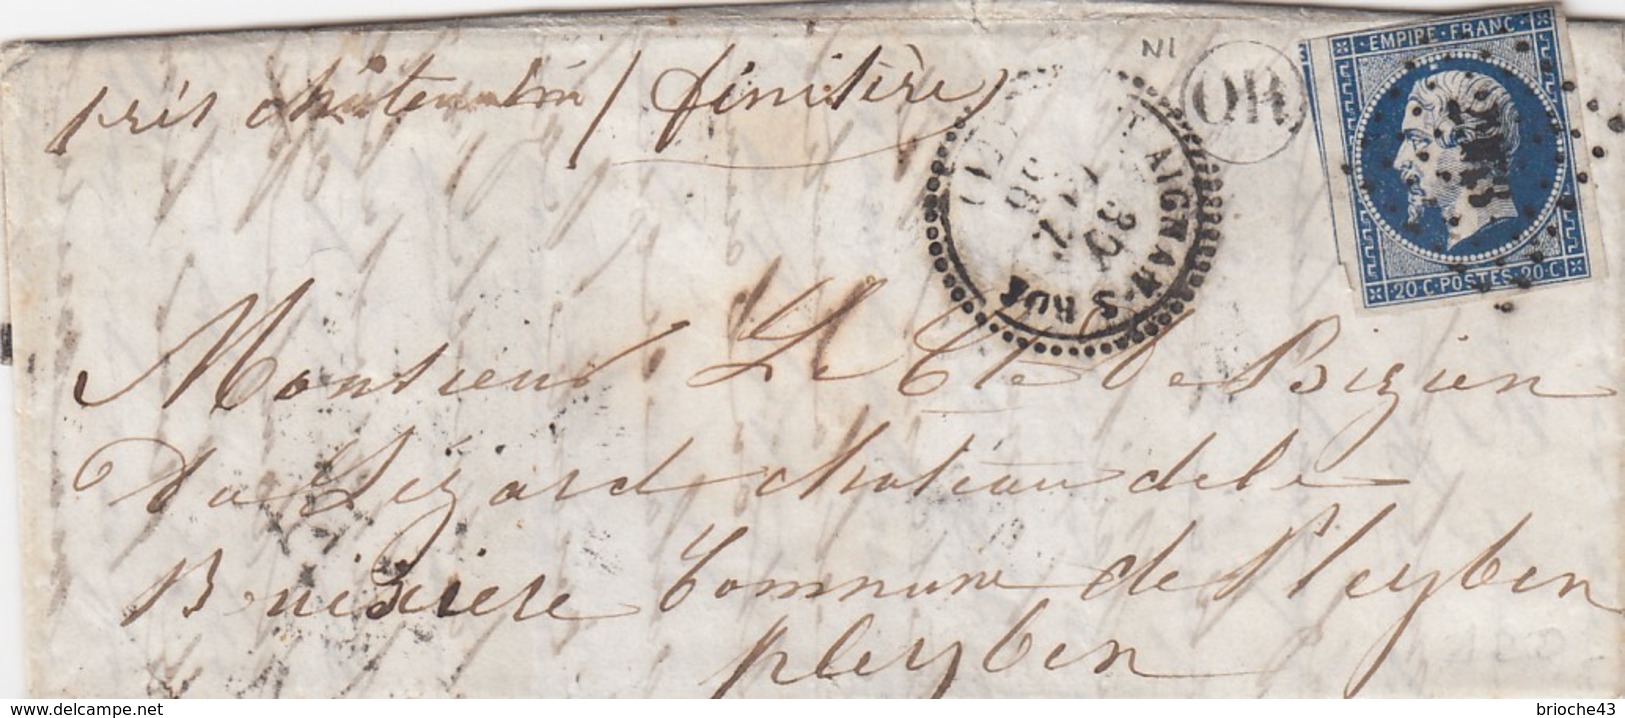 près châteaulin / finistère
N1
OR
EMPIRE · FRANC ·
20·C·POSTES·20·C·
T AIGNAN-S-ROE
30
Monsieur Le Cte de Bizien
Du Lézard château de la
Bouixiere Commune de Pleyben
pleyben
www.delcampe.net
brioche43